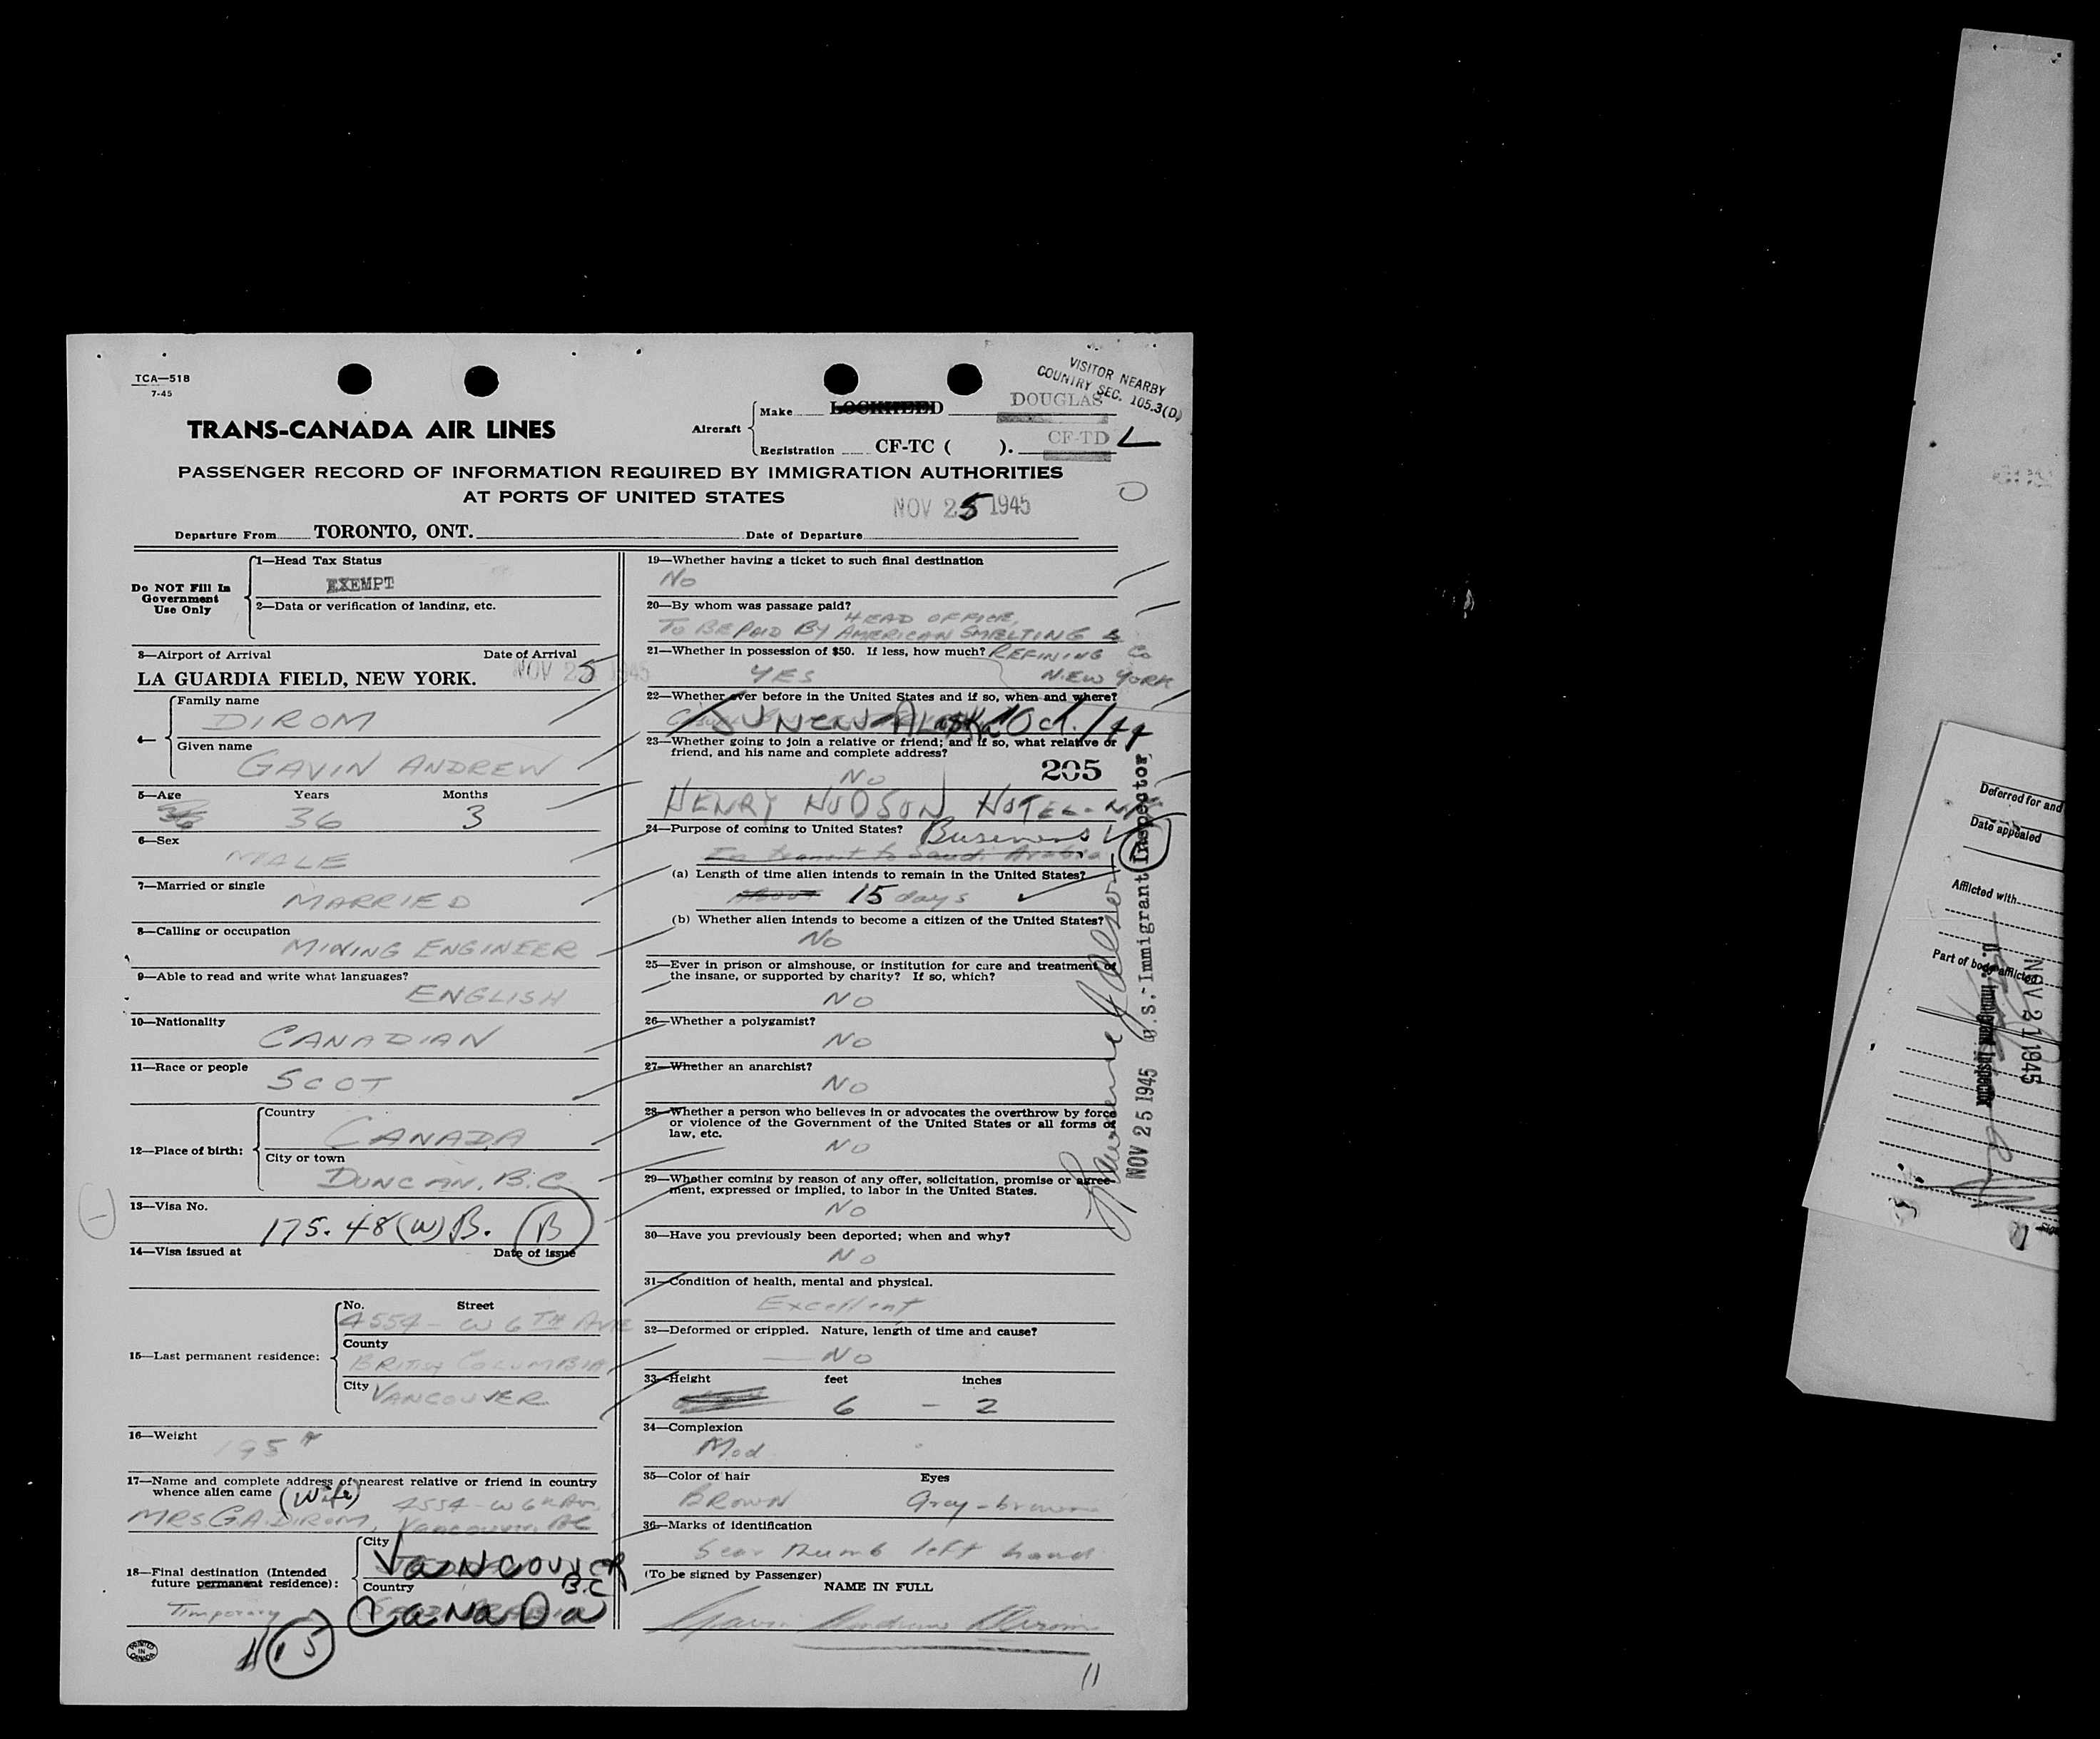 TCA—518
7-45
VISITOR NEARBY
COUNTRY SEC. 105.3(D)
TRANS-CANADA AIR LINES
Aircraft
Make LOCKHEED DOUGLAS
Registration CF-TC ( ). CF-TD L
PASSENGER RECORD OF INFORMATION REQUIRED BY IMMIGRATION AUTHORITIES
AT PORTS OF UNITED STATES
NOV 25 1945
Departure From TORONTO, ONT. Date of Departure
Do NOT Fill In
Government
Use Only
1—Head Tax Status
EXEMPT
2—Data or verification of landing, etc.
3—Airport of Arrival Date of Arrival
LA GUARDIA FIELD, NEW YORK. NOV 25 1945
4—
Family name
DIROM
Given name
GAVIN ANDREW
5—Age Years Months
36 3
6—Sex
MALE
7—Married or single
MARRIED
8—Calling or occupation
MINING ENGINEER
9—Able to read and write what languages?
ENGLISH
10—Nationality
CANADIAN
11—Race or people
SCOT
12—Place of birth:
Country
CANADA
City or town
DUNCAN, B.C.
13—Visa No.
175.48(W)B. B
14—Visa issued at Date of issue
15—Last permanent residence:
No. Street
4554 - W 6TH AVE
County
BRITISH COLUMBIA
City VANCOUVER
16—Weight
195
17—Name and complete address of nearest relative or friend in country
whence alien came (Wife) 4554 - W 6th Av.
MRS. G.A. DIROM, Vancouver, BC
18—Final destination (Intended
future permanent residence):
City
VANCOUVER
B.C
Country
CANADA
Temporary
15
PRINTED IN CANADA
19—Whether having a ticket to such final destination
No
20—By whom was passage paid?
HEAD OFFICE,
TO BE PAID BY AMERICAN SMELTING &
21—Whether in possession of $50. If less, how much? REFINING Co
YES NEW YORK
22—Whether ever before in the United States and if so, when and where?
JUNEAU Alaska Oct./44
23—Whether going to join a relative or friend; and if so, what relative or
friend, and his name and complete address?
No 205
HENRY HUDSON HOTEL - NY
24—Purpose of coming to United States? Business
In transit to Saudi Arabia
(a) Length of time alien intends to remain in the United States?
15 days
(b) Whether alien intends to become a citizen of the United States?
No
25—Ever in prison or almshouse, or institution for care and treatment of
the insane, or supported by charity? If so, which?
NO
26—Whether a polygamist?
NO
27—Whether an anarchist?
NO
28—Whether a person who believes in or advocates the overthrow by force
or violence of the Government of the United States or all forms of
law, etc.
NO
29—Whether coming by reason of any offer, solicitation, promise or agree-
ment, expressed or implied, to labor in the United States.
NO
30—Have you previously been deported; when and why?
NO
31—Condition of health, mental and physical.
Excellent
32—Deformed or crippled. Nature, length of time and cause?
— NO
33—Height feet inches
6 - 2
34—Complexion
Med
35—Color of hair Eyes
BROWN Gray-brown
36—Marks of identification
Scar thumb left hand
(To be signed by Passenger)
NAME IN FULL
Gavin Andrew Dirom
11
NOV 25 1945 U.S. Immigrant Inspector
Deferred for and
Date appealed
Afflicted with
Part of body afflicted
NOV 21 1945
U.S. Immigrant Inspector